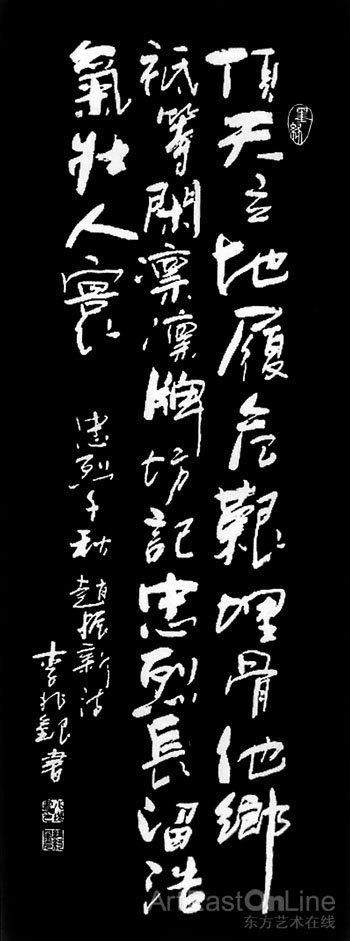 頂天立地履危艱埋骨他鄉
祗等閑凛凛牌坊記忠烈長留浩
氣壯人寰
忠烈千秋 趙振新詩
李兆銀書
ArtEastOnLine
东方艺术在线